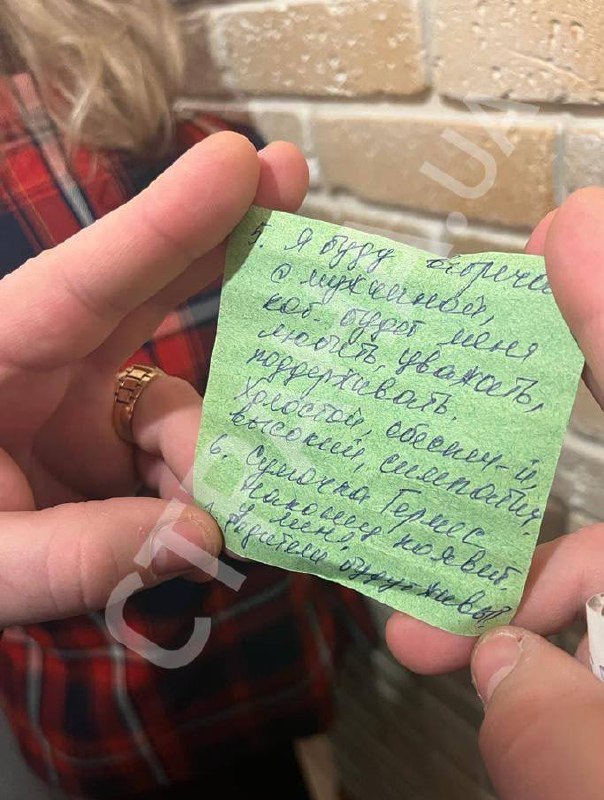 5. Я буду встреча
с мужчиной,
кот. будет меня
любить, уважать,
поддерживать.
Холостой, обеспеч-й,
высокий, симпатич.
6. Сумочка Гермес
наконец появит.
у меня.
Родители будут живы